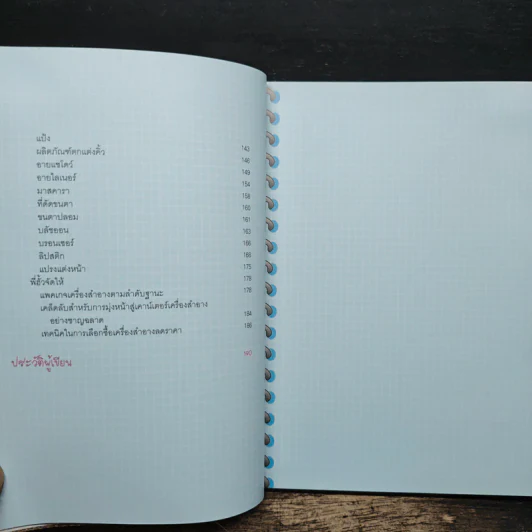 แป้ง 143
ผลิตภัณฑ์ตกแต่งคิ้ว 146
อายแชโดว์ 149
อายไลเนอร์ 154
มาสคารา 158
ที่ดัดขนตา 160
ขนตาปลอม 161
บลัชออน 163
บรอนเซอร์ 166
ลิปสติก 168
แปรงแต่งหน้า 175
พี่ฮั้วจัดให้ 178
แพคเกจเครื่องสำอางตามลำดับฐานะ 178
เคล็ดลับสำหรับการมุ่งหน้าสู่เคาน์เตอร์เครื่องสำอาง
อย่างชาญฉลาด 184
เทคนิคในการเลือกซื้อเครื่องสำอางลดราคา 188
ประวัติผู้เขียน